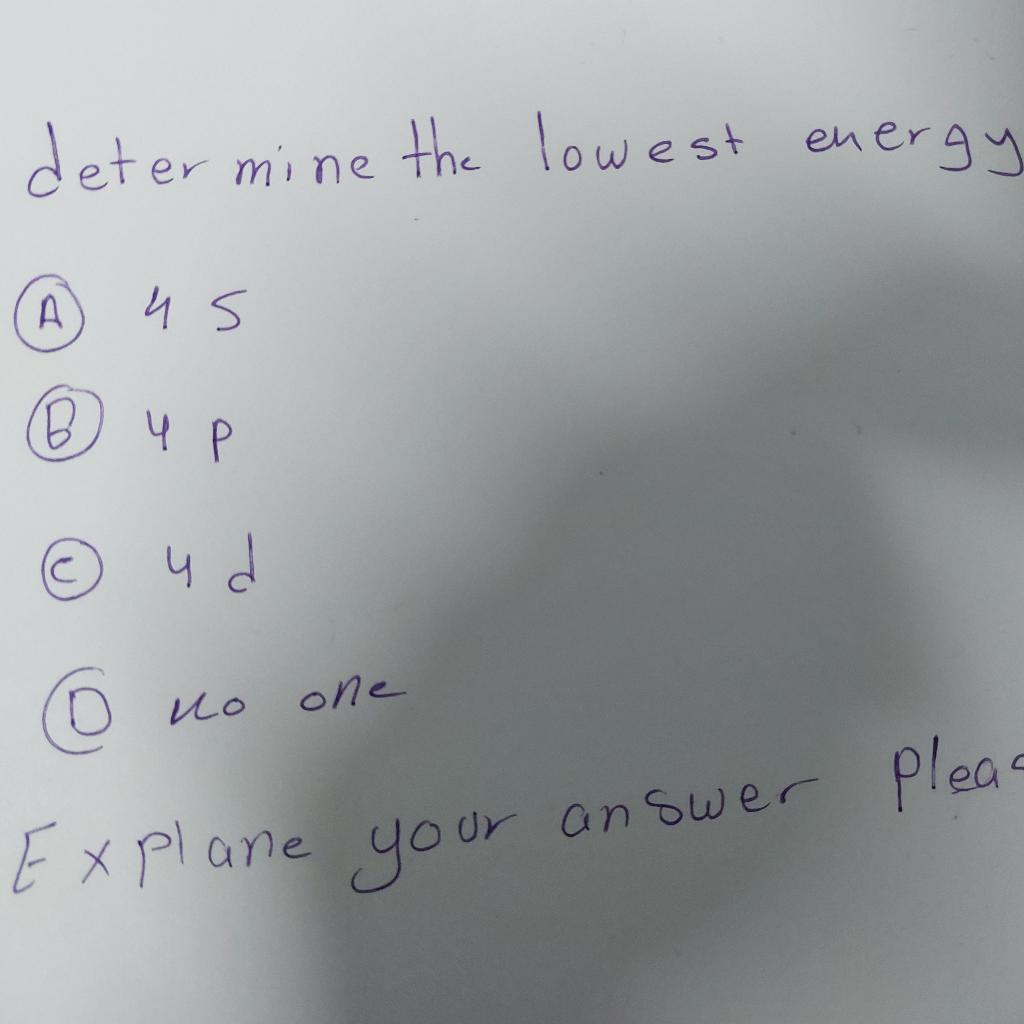 determine the lowest energy
A 4 s
B 4 p
C 4 d
D no one
Explane your answer